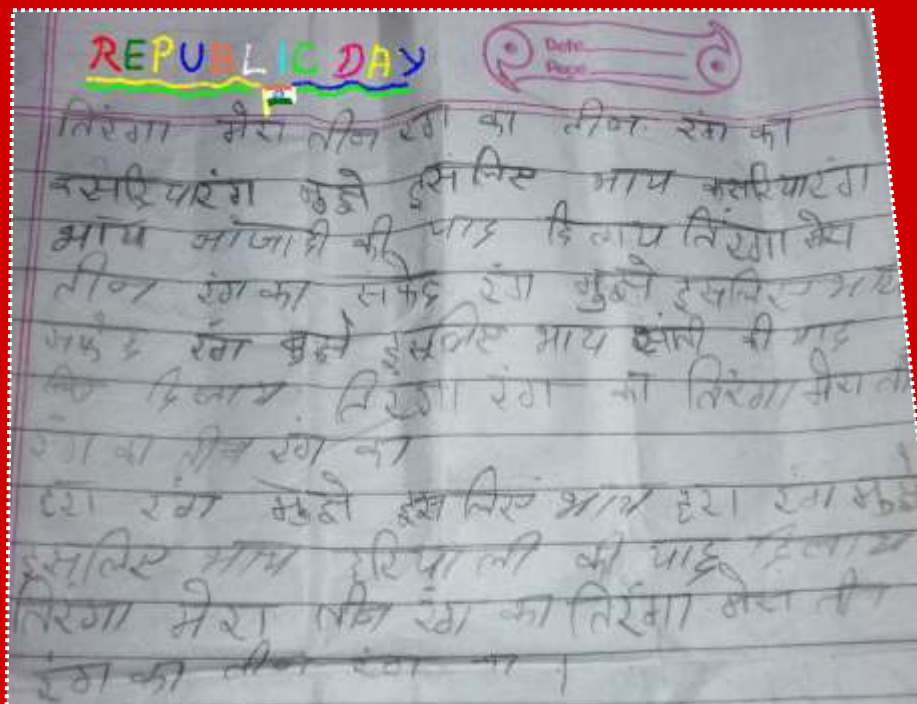 REPUBLIC DAY
Date
Page
तिरंगा मेरा तीन रंग का तीन रंग का
कसरियारंग मुझे इस लिए भाय कसरियारंग
भाय आजादी की याद दिलाय तिरंगा मेरा
तीन रंग का सफेद रंग मुझे इसलिए भाय
सफेद रंग मुझे इसलिए भाय की याद
दिलाय तिरंगा रंग का तिरंगा मेरा ती
रंग का तीन रंग का
हरा रंग मुझे इस लिए भाय हरा रंग मुझे
इसलिए भाय हरियाली की याद दिलाय
तिरंगा मेरा तीन रंग का तिरंगा मेरा तीन
रंग का तीन रंग का।